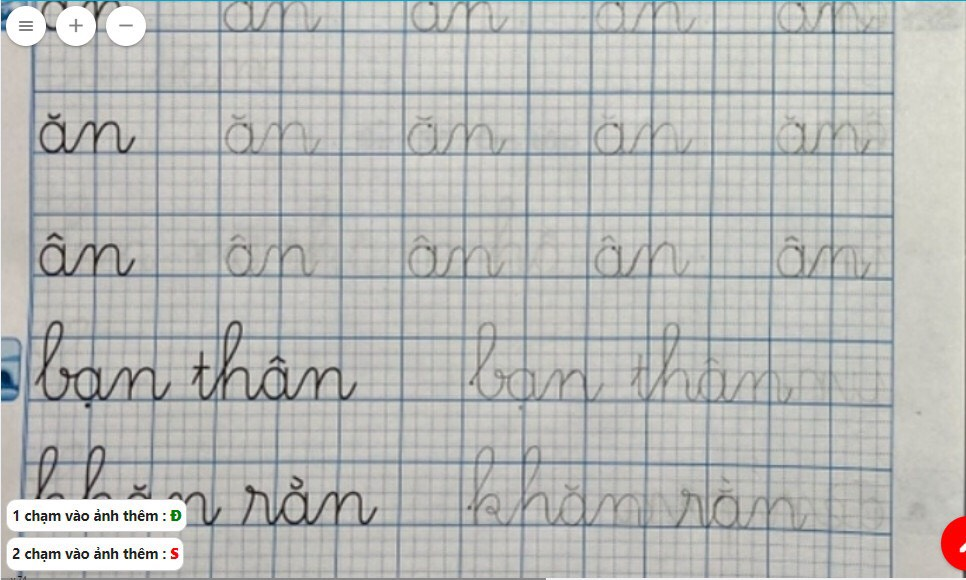 an an an an an
ăn ăn ăn ăn ăn
ân ân ân ân ân
bạn thân bạn thân
khăn rằn khăn rằn
1 chạm vào ảnh thêm : Đ
2 chạm vào ảnh thêm : S